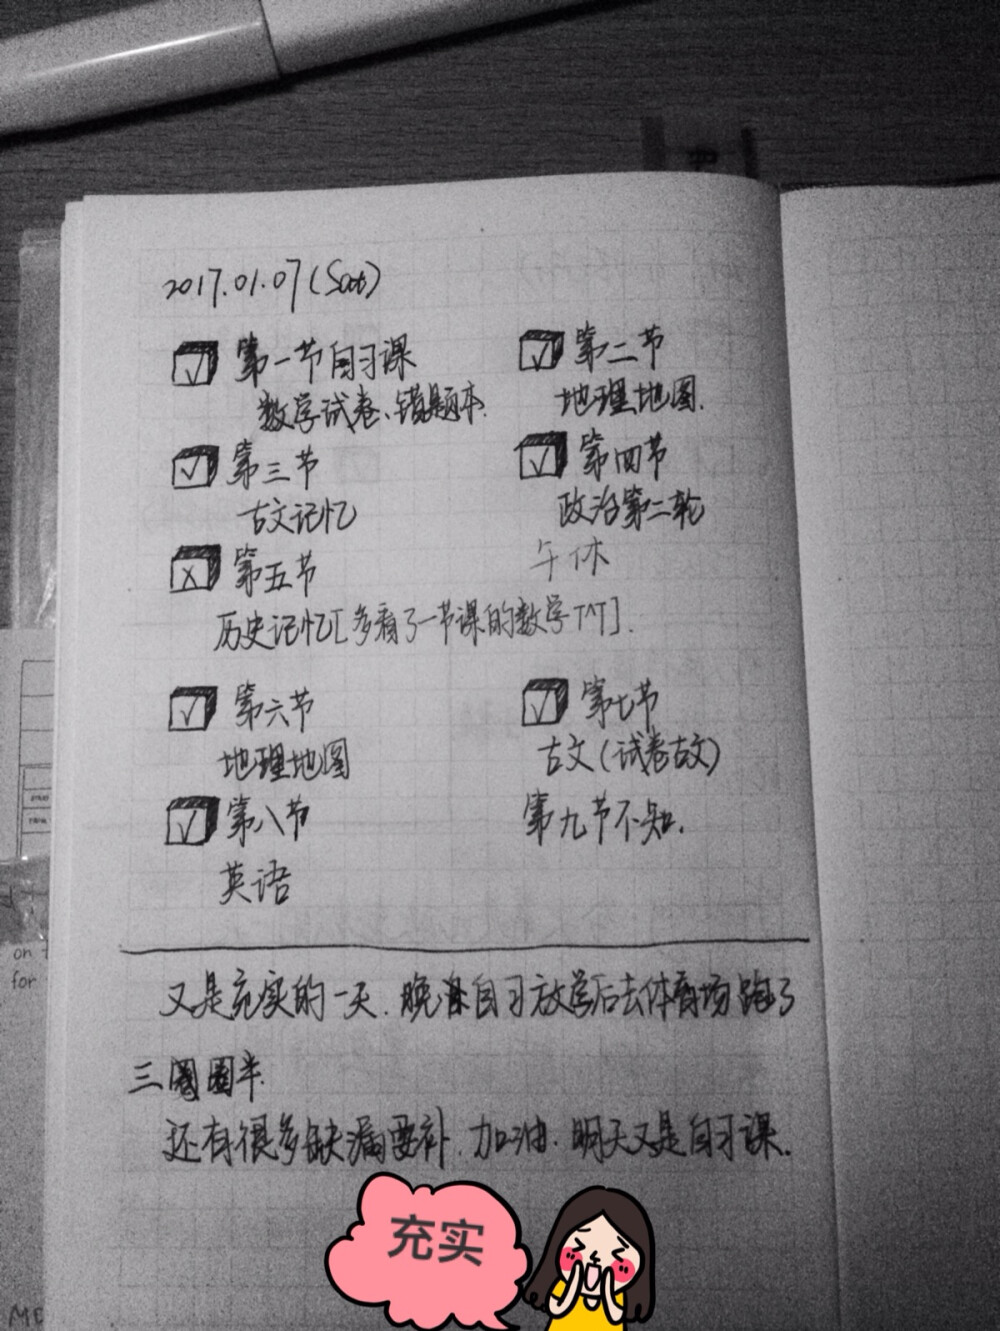 2017.01.07(Sat)
第一节自习课
数学试卷、错题本.
第二节
地理地图.
第三节
古文记忆
第四节
政治第二轮
午休
第五节
历史记忆[多看了一节课的数学TAT].
第六节
地理地图
第七节
古文(试卷古文)
第八节
英语
第九节不知.
又是充实的一天.晚自习放学后去体育场跑了
三圈圈半.
还有很多缺漏要补.加油.明天又是自习课.
充实
on
for